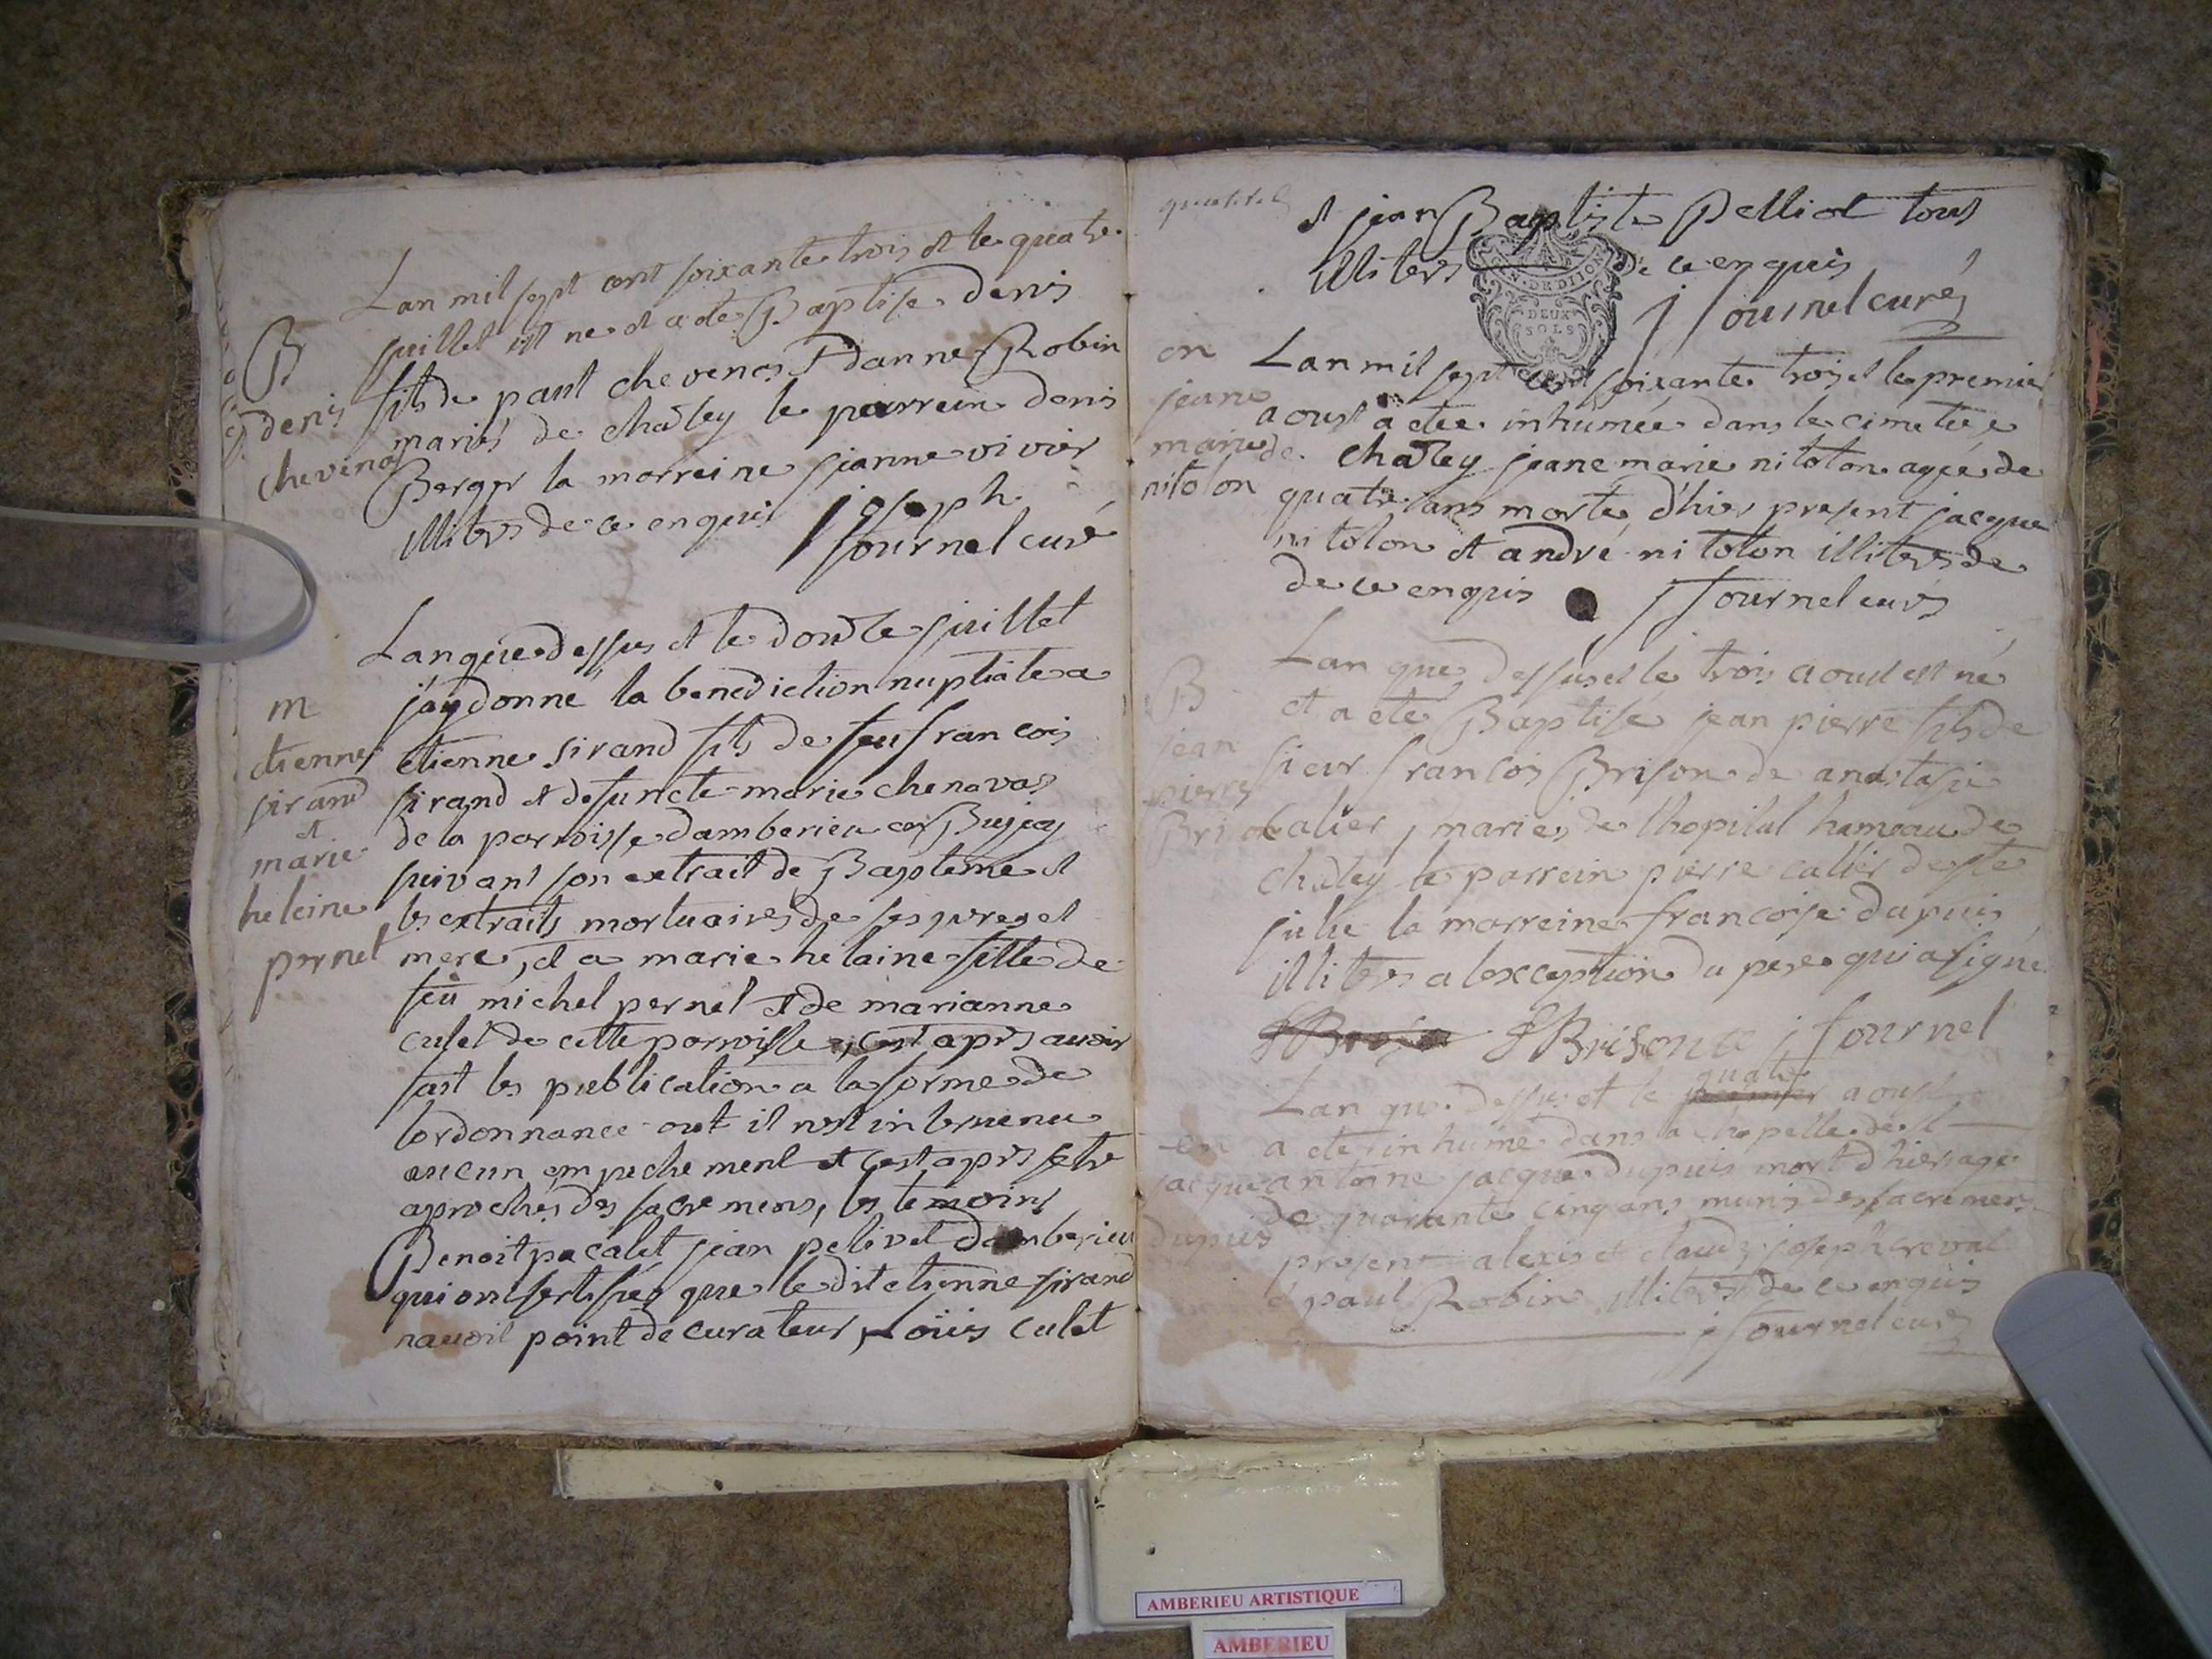 Lan mil sept cent soixante trois et le quatre
juillet est ne et a ete Baptise denis
fils de paul chevenas et danne Robin
mariés de chaley le parrein denis
Berger la marreine jeanne vivier
illiters de ce enquis joseph
fournel curé
B
denis
chevenas
Lan que dessus et le douze juillet
j'ay donné la benediction nuptiale a
etienne sirand fils de feu francois
sirand et defuncte marie chenavas
de la parroisse damberieu en Bugey
suivant son extrait de Baptême et
les extraits mortuaires de ses peres et
mere, et a marie helaine fille de
feu michel pernet et de marianne
culet de cette parroisse, cest apres avoir
fait les publication a la forme de
lordonnance out il nest intervenu
aucun empechement et cest apres setre
aprochés des sacremens, les temoins
Benoit pacalet jean pelivet damberieu
qui ont sertifiés que le dit etienne sirand
navoit point de curateur, Loüis culet
m
etienne
sirand
et
marie
heleine
pernet
et jean Baptiste Pelliot tous
illiters de ce enquis
j fournel curé
DEUX
SOLS
Lan mil sept cent soixante trois et le premier
aoust a etee inhumée dans le cimetiere
de chaley jeane marie nitolon agée de
quatre ans morte d'hier present jacque
nitolon et andré nitolon illiters de
de ce enquis j fournel curé
en
jeane
marie
nitolon
Lan que dessus et le trois aoust est né
et a ete Baptise jean pierre fils de
sieur francois Brison de anastasie
calier, mariés de lhopital hameau de
chaley le parrein pierre calier de ste
julie la marreine francoise dupuis
illiters a lexception du pere qui a signé
F Brison j fournel
B
jean
pierre
Brison
Lan que dessus et le quatre aoust
a ete inhumé dans la chapelle de st
antoine jacque dupuis mort d'hier age
de quarante cinq ans munis des sacremens
present alexis et claude joseph
et paul Robin illiters de ce enquis
j fournel curé
en
jacque
dupuis
AMBERIEU ARTISTIQUE
AMBERIEU